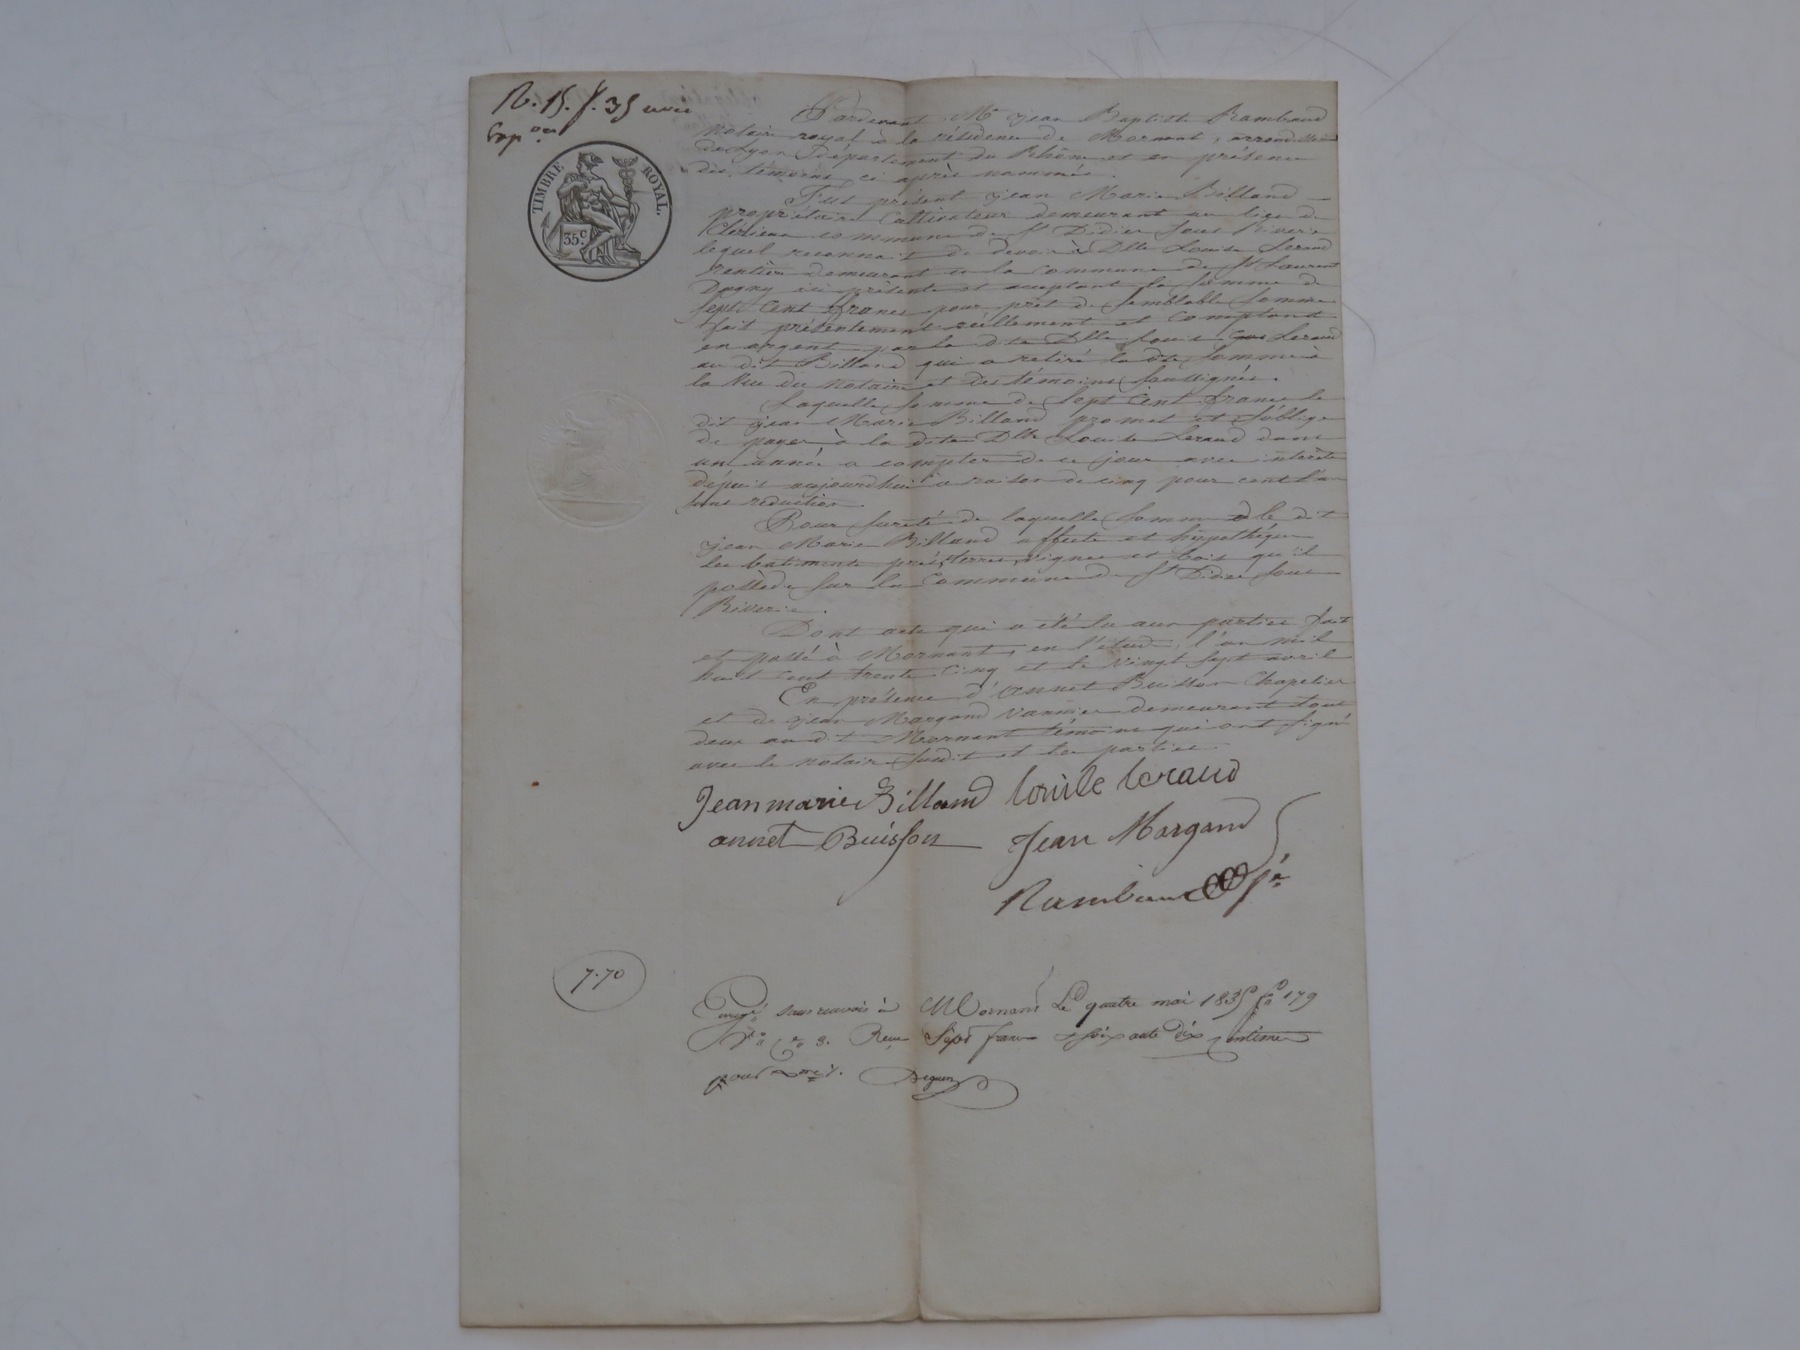 R. 15. f. 35 avec
Exp.on
TIMBRE ROYAL.
35c
Pardevant Me jean Baptiste Rambaud
notaire royal à la résidence de Mornant, arrondisst
de Lyon département du Rhône et en présence
des témoins ci après nommés.
Fut présent jean Marie Billand
propriétaire Cultivateur demeurant au lieu de
commune de St Didier sous Riverie
lequel reconnait de devoir à Dlle Louise Leraud
rentière demeurant en la commune de St Laurent
Dagny ici présente et acceptant la somme de
sept Cent francs pour pret de semblable somme
fait présentement réellement et comptant
en argent par la dte Dlle Louise Leraud
au dit Billand qui a retiré la dte somme à
la vue du notaire et des témoins soussignés.
Laquelle somme de sept Cent francs le
dit jean Marie Billand promet et s'oblige
de payer à la dite Dlle Louise Leraud dans
un année a compter de ce jour avec intérêts
depuis aujourdhui a raison de cinq pour cent l'an
sans réduction.
Pour sureté de laquelle somme le dit
jean Marie Billand affecte et hypothéque
les batiments, prés, terres, vignes et bois qu'il
possède sur la Commune de St Didier sous
Riverie.
Dont acte qui a été lu aux parties fait
et passé à Mornant, en l'étude, l'an mil
huit cent trente cinq et le vingt sept avril
En présence d'annet Buisson Chapelier
et de jean Margand vannier demeurant tout
deux au dit Mornant témoins qui ont signé
avec le notaire susdit et les parties.
Jean marie Billand louise leraud
annet Buisson Jean Margand
Rambaud
7.70
Enregé sans renvois à Mornant Le quatre mai 1835 fo 179
Vo Co 3. Reçu Sept francs soixante dix centimes
pour